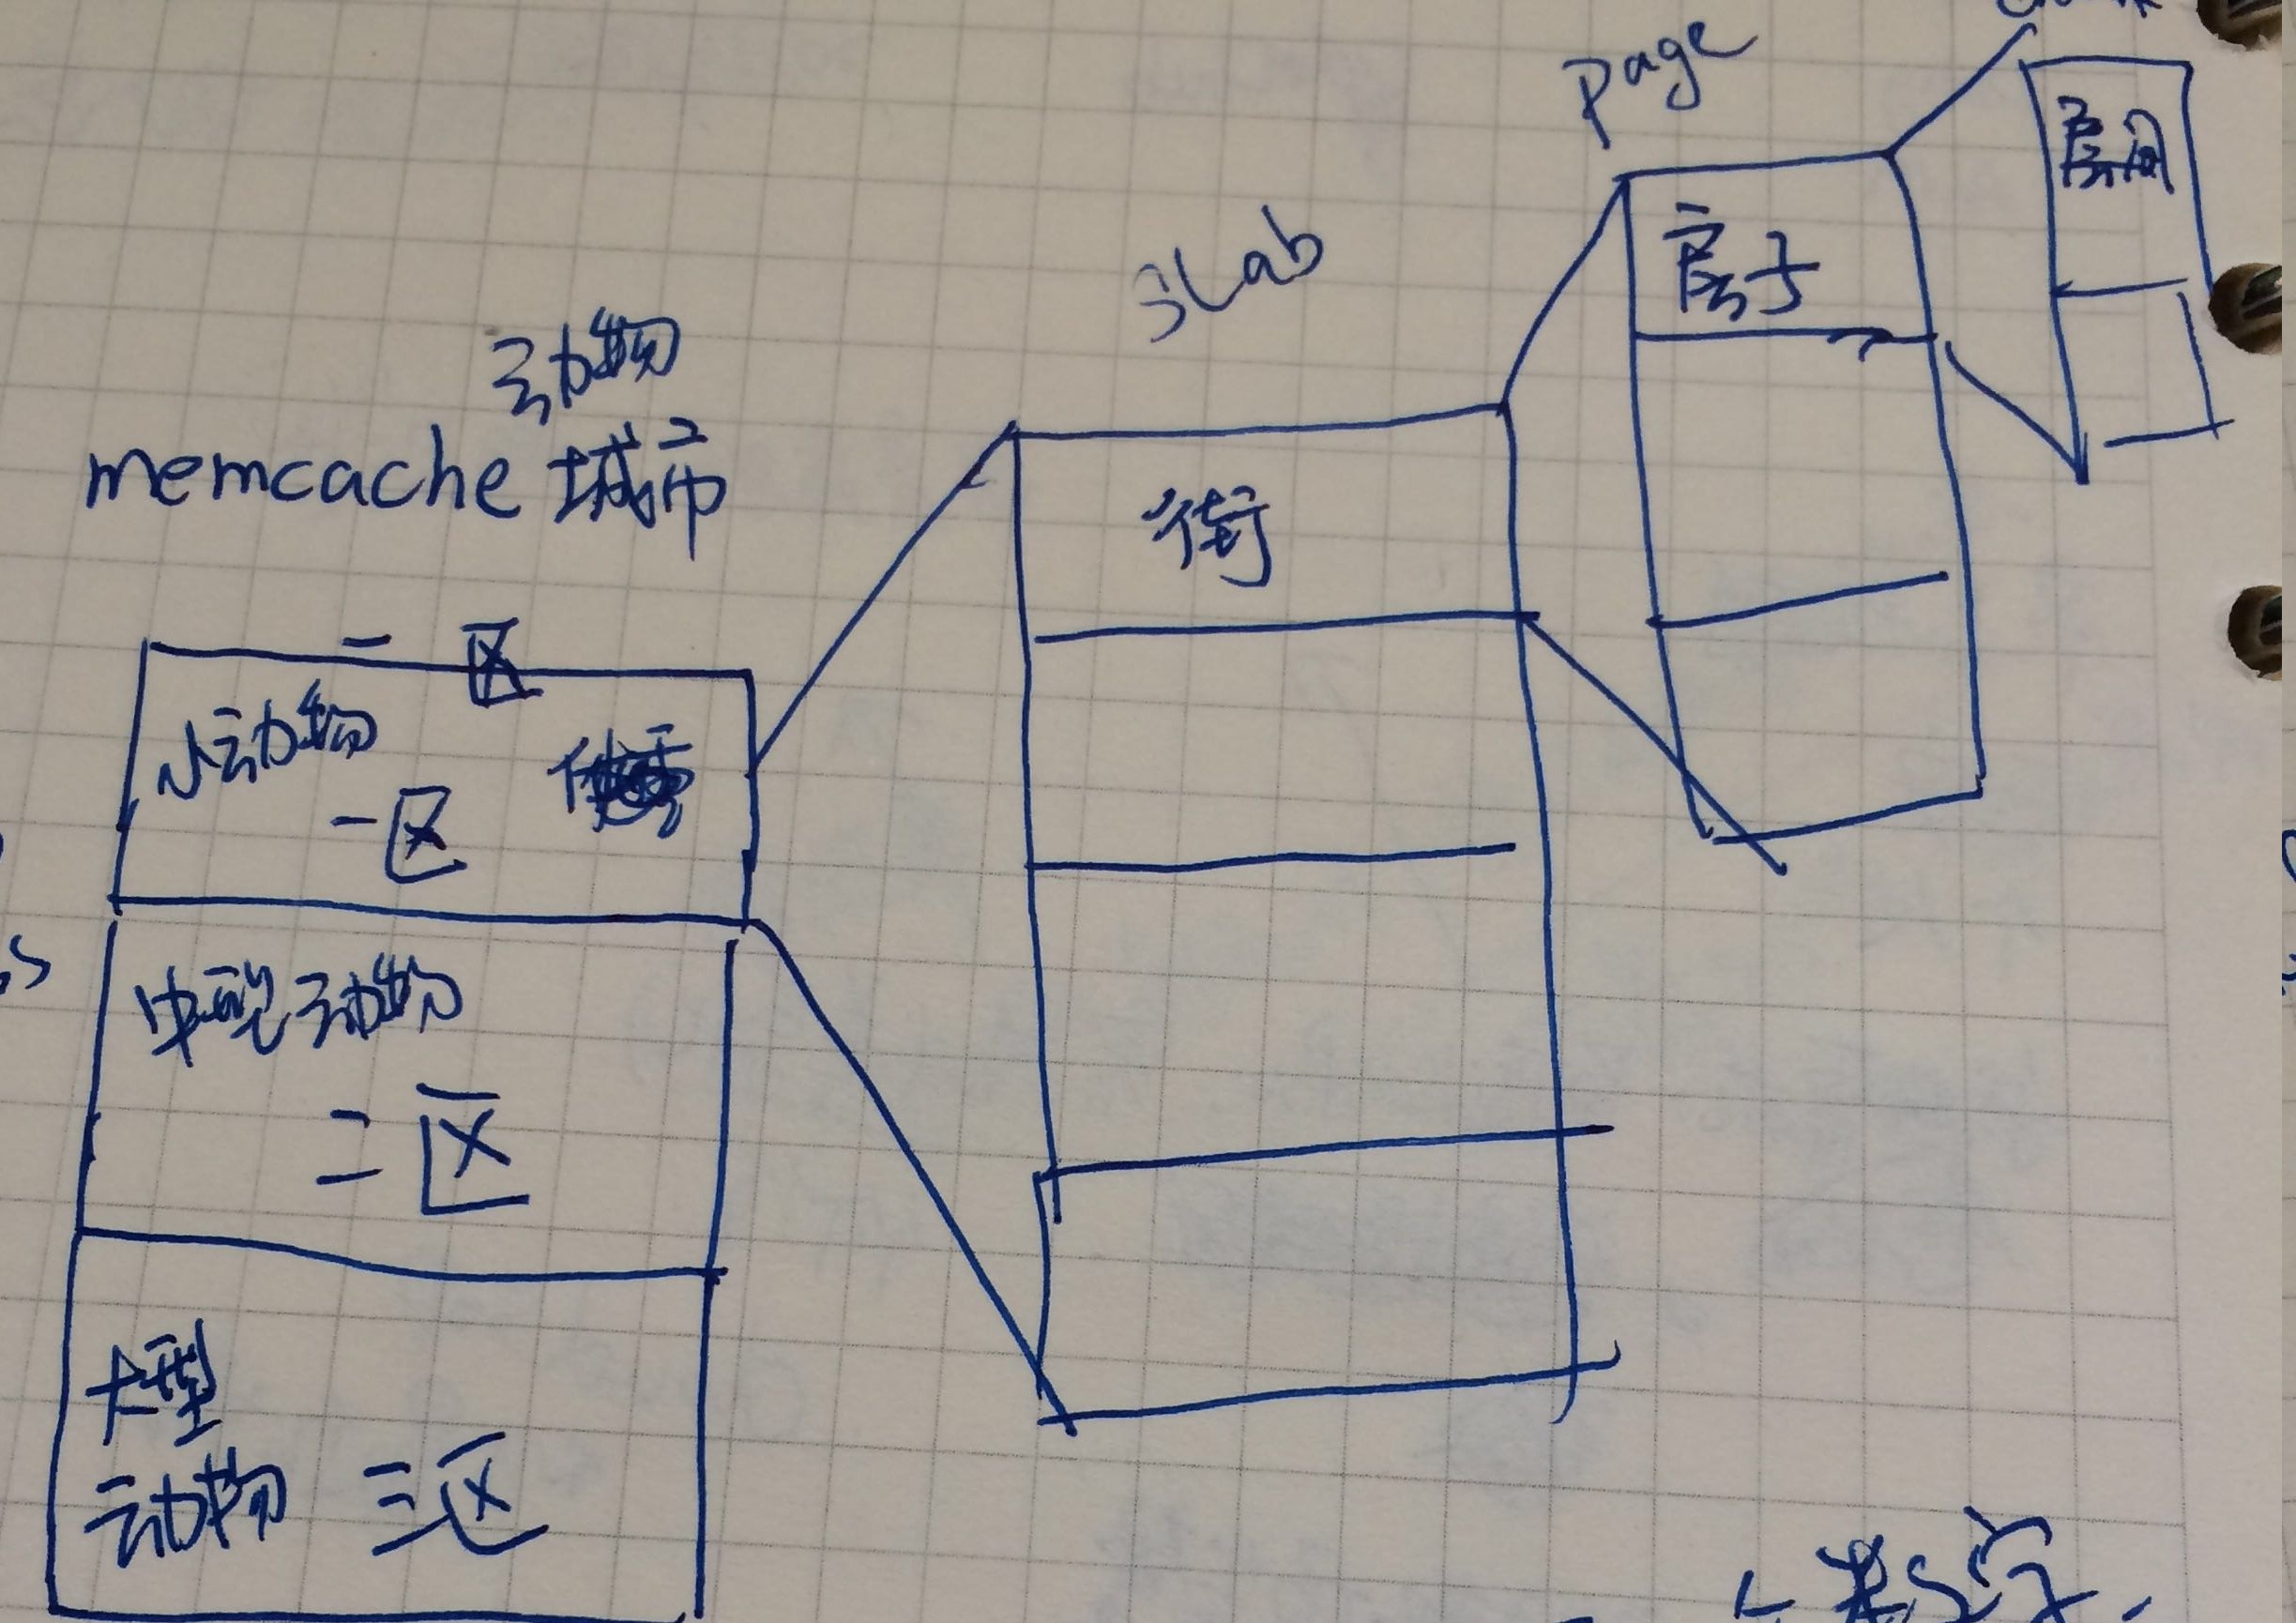 动物
memcache 城市
一区
小动物
一区
中型动物
二区
大型
动物 三区
slab
街
Page
房子
房间